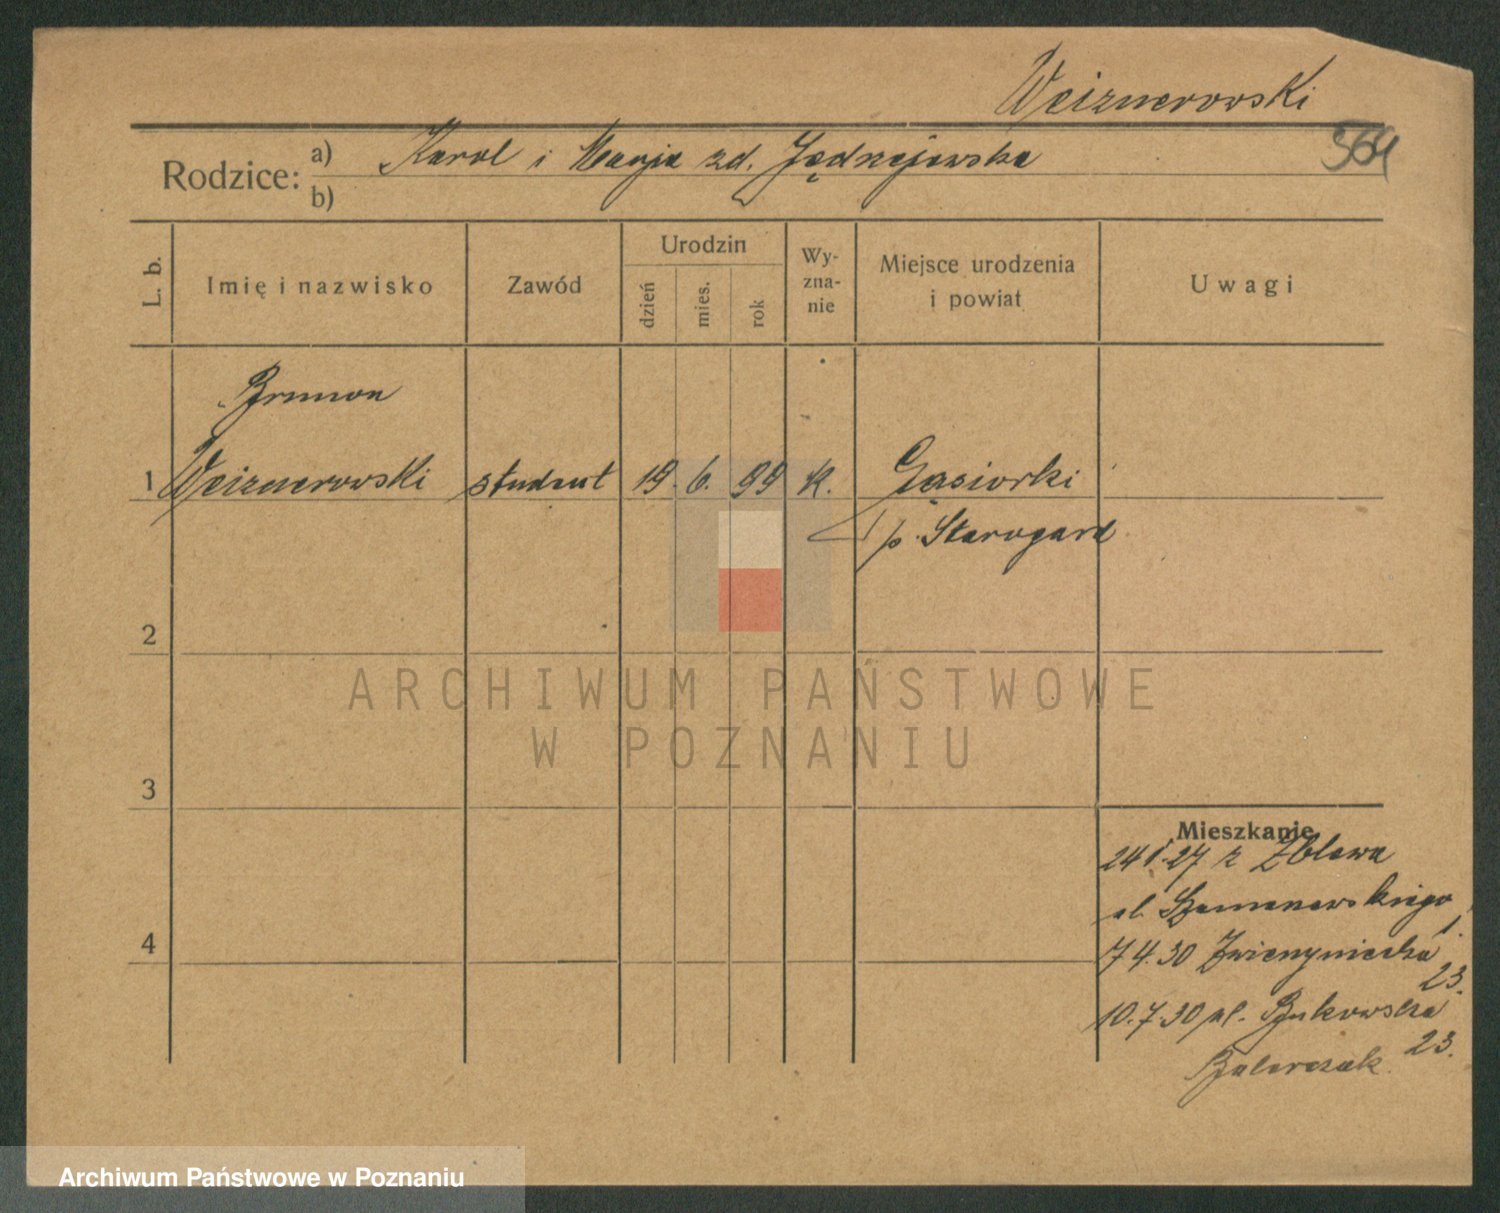 Weiznerowski
564
Rodzice: a) Karol i Marja zd. Jędrzejewska
b)
L. b.
Imię i nazwisko
Zawód
Urodzin
dzień
mies.
rok
Wy-
zna-
nie
Miejsce urodzenia
i powiat
Uwagi
Brunon
1 Weiznerowski student 19. 6. 99 k. Gąsiorki
p. Starogard
2
3
4
Mieszkanie
24 1. 27 z Zblewa
ul. Szamarzewskiego 1.
7 4. 30 Zwierzyniecka 23.
10. 7. 30 ul. Bukowska 23.
ARCHIWUM PAŃSTWOWE
W POZNANIU
Archiwum Państwowe w Poznaniu